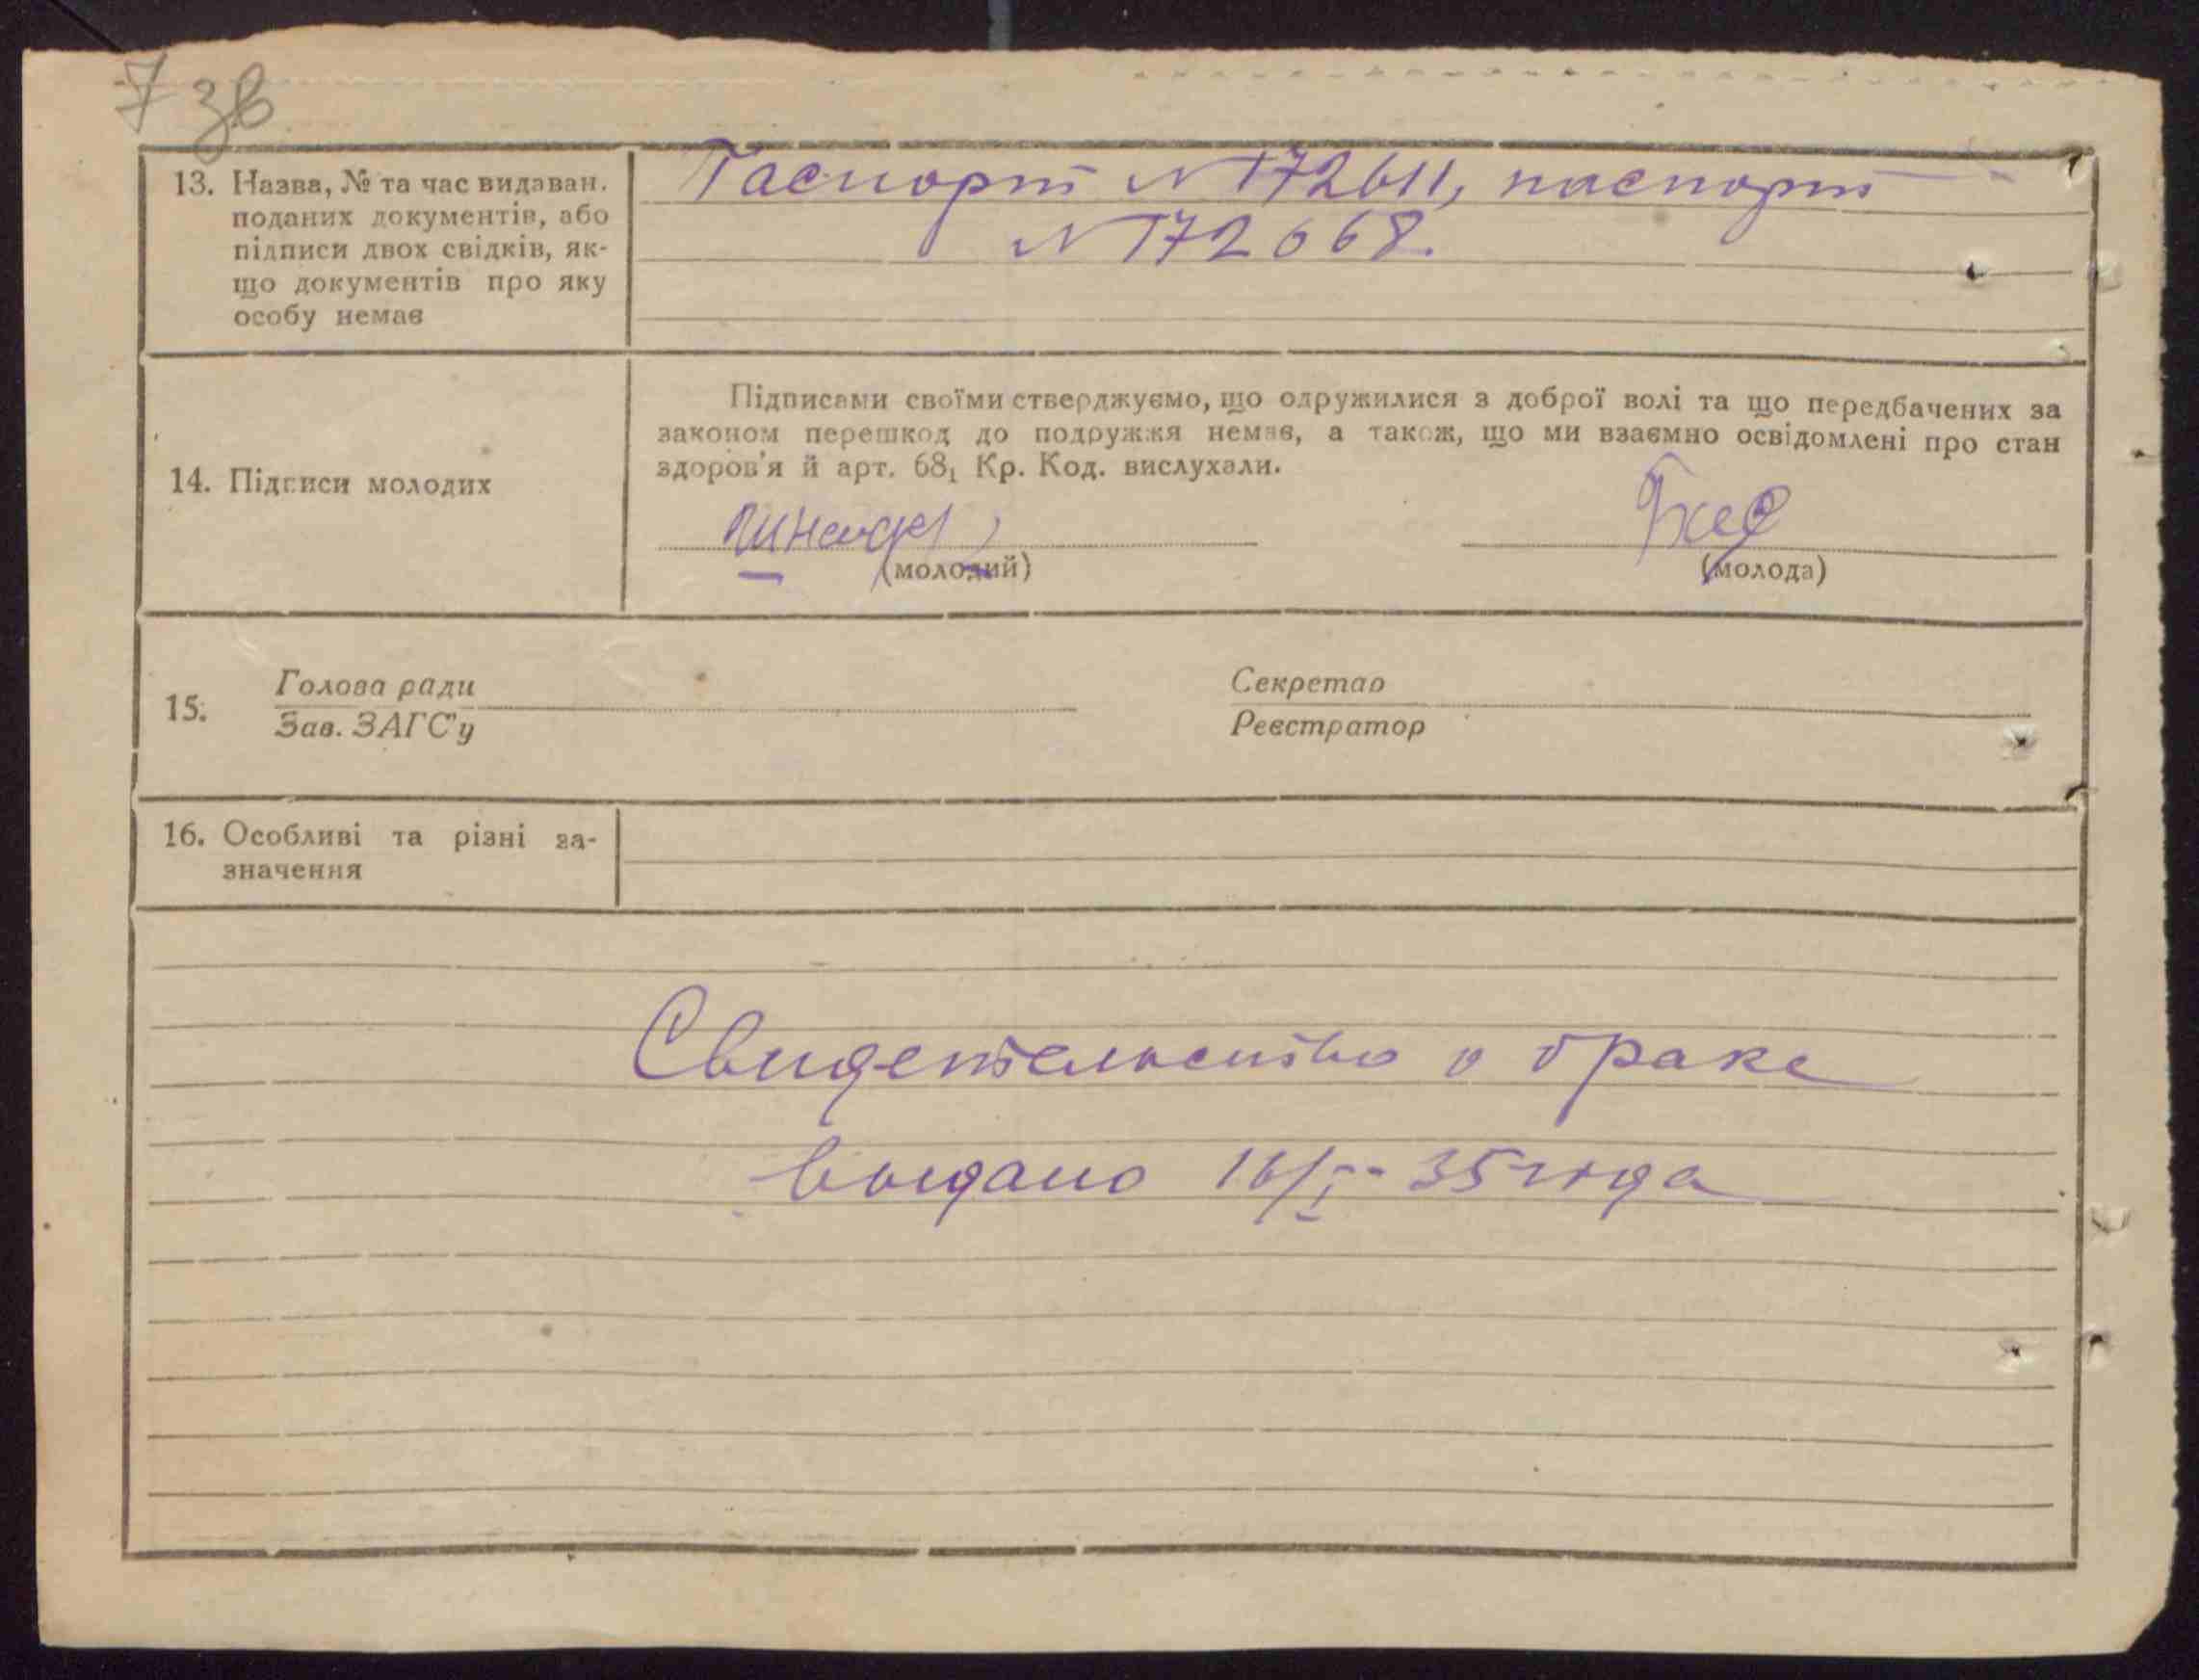 7 зв
13. Назва, № та час видаван.
поданих документів, або
підписи двох свідків, як-
що документів про яку
особу немає
Паспорт N 172611, паспорт
N 172668.
14. Підписи молодих
Підписами своїми стверджуємо, що одружилися з доброї волі та що передбачених за
законом перешкод до подружжя немає, а також, що ми взаємно освідомлені про стан
здоров'я й арт. 68₁ Кр. Код. вислухали.
(молодий)
(молода)
15.
Голова ради
Зав. ЗАГС'у
Секретар
Реєстратор
16. Особливі та різні за-
значення
Свидетельство о браке
выдано 16/I - 35 года